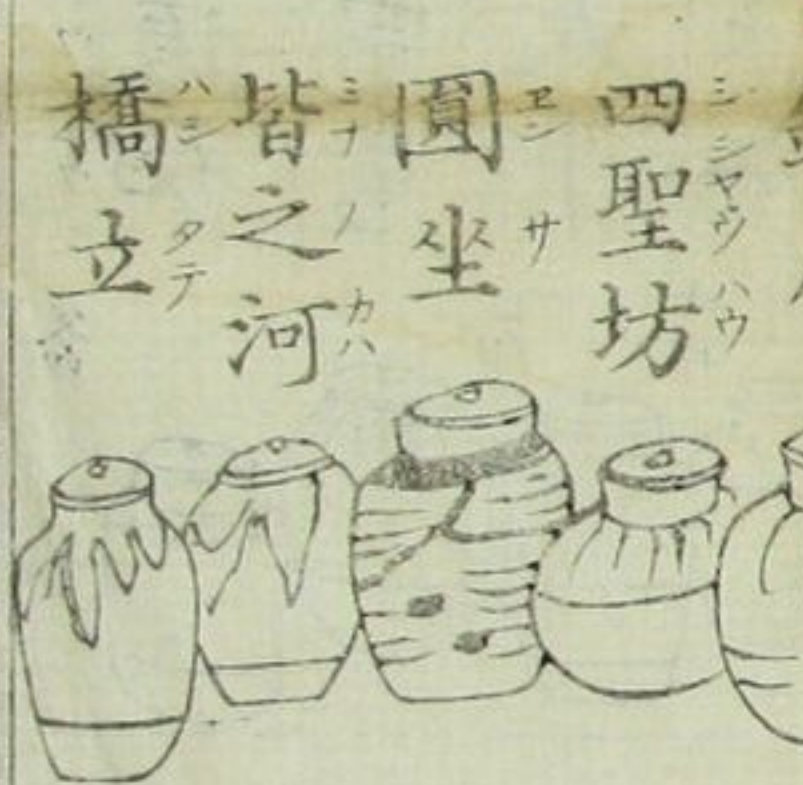 四聖坊
シシヤウハウ
圓坐
ヱンサ
皆之河
ミナノカハ
橋立
ハシタテ